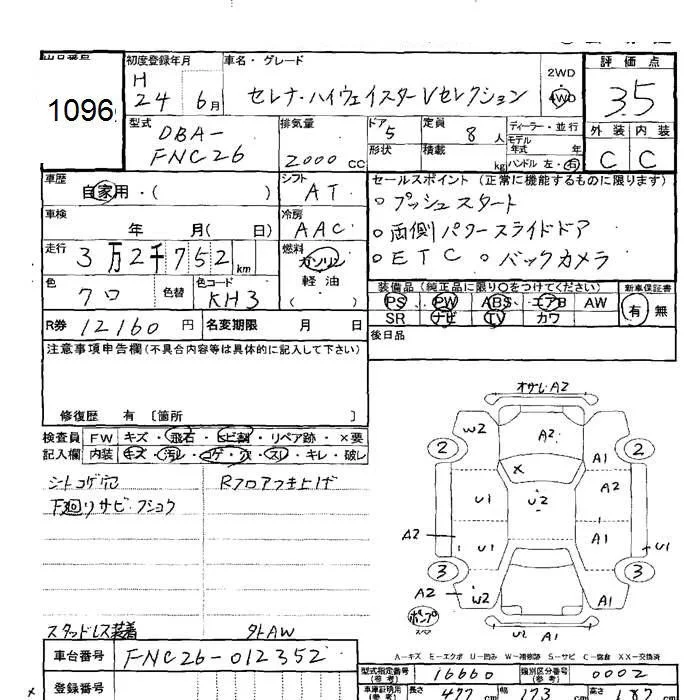 初度登録年月 車名・グレード
1096
H 24 6月
セレナ・ハイウェイスターVセレクション
2WD
4WD
評価点
3.5
外装 内装
C C
型式
DBA-
FNC26
排気量
2000 CC
ドア 5
形状
定員 8人
積載 kg
ディーラー・並行
モデル年式 年
ハンドル 左・右
車歴
自家用・( )
シフト
AT
車検
年 月( 日)
冷房
AAC
走行
3万2千752 km
燃料
ガソリン
軽油
( )
色
クロ
色替
色コード
KH3
R券 12160円 名変期限 月 日
セールスポイント (正常に機能するものに限ります)
○プッシュスタート
○両側パワースライドドア
○ETC ○バックカメラ
装備品(純正品に限り○をつけてください) 新車保証書
PS PW ABS エアB AW
SR ナビ TV カワ
有 無
後日品
注意事項申告欄(不具合内容等は具体的に記入して下さい)
修復歴 有 〔箇所 〕
検査員 FW キズ・飛石・ヒビ割・リペア跡・×要
記入欄 内装 キズ・汚レ・コゲ・穴・スレ・キレ・破レ
シートコゲ穴
下廻りサビ・フショク
Rフロアつき上げ
スタッドレス装着 外AW
オサレA2
W2
A2
A1
2
2
×
U1
U2
A2
A2
U1
A1
U1
3
3
A2
W2
A1
ポンプ
スペア
U2 A1
A-キズ E-エクボ U-凹み W-補修跡 S-サビ C-腐食 XX-交換済
車台番号 FNC26-012352
型式指定番号(参考) 16660
類別区分番号(参考) 0002
登録番号
車庫証明用(参考) 長さ 477cm 幅 173cm 高さ 187cm